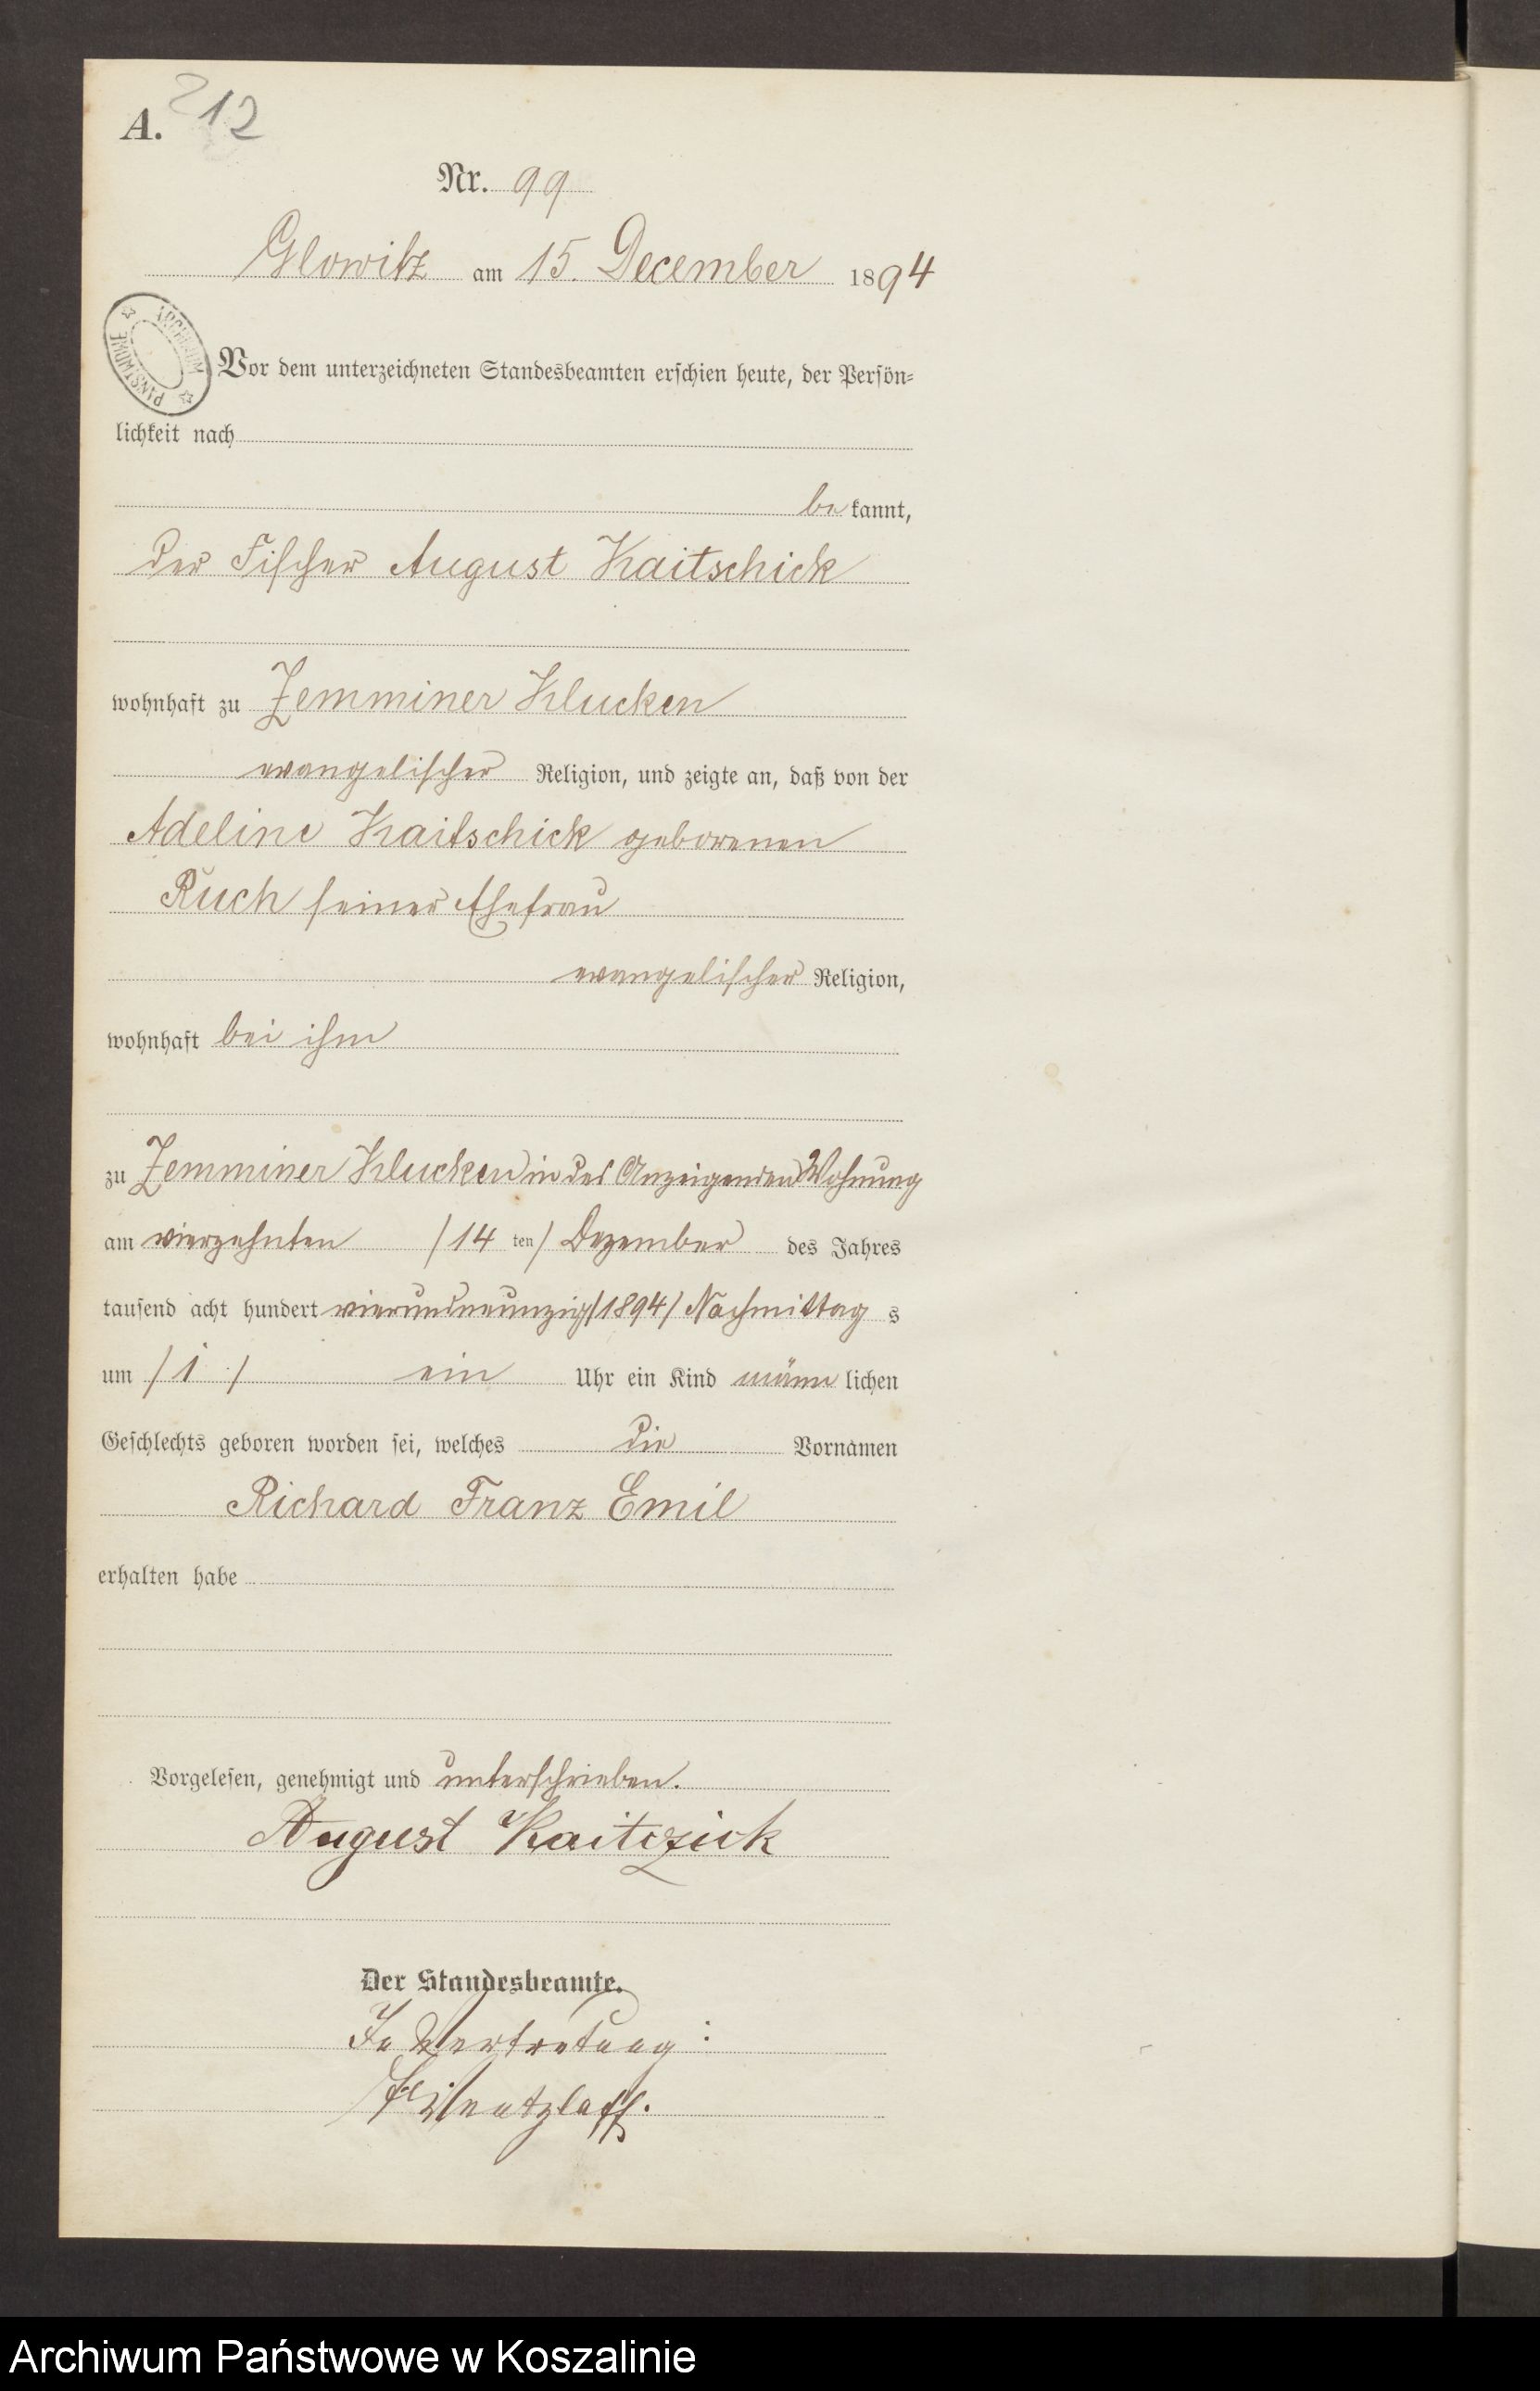 A. 212
Nr. 99
Glowitz am 15. December 1894
ARCHIWUM PAŃSTWOWE
Vor dem unterzeichneten Standesbeamten erschien heute, der Persön-
lichkeit nach
bekannt,
der Fischer August Kaitschick
wohnhaft zu Zemminer Klucken
evangelischer Religion, und zeigte an, daß von der
Adeline Kaitschick geborenen
Ruch seiner Ehefrau
evangelischer Religion,
wohnhaft bei ihm
zu Zemminer Klucken in des Anzeigenden Wohnung
am vierzehnten /14 ten/ Dezember des Jahres
tausend acht hundert vierundneunzig /1894/ Nachmittag s
um /1/ ein Uhr ein Kind männlichen
Geschlechts geboren worden sei, welches die Vornamen
Richard Franz Emil
erhalten habe
Vorgelesen, genehmigt und unterschrieben.
August Kaitczick
Der Standesbeamte.
In Vertretung:
Wentzlaff.
Archiwum Państwowe w Koszalinie